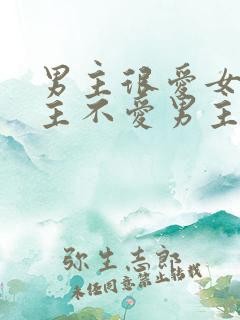 男主很爱女
主不爱男主
弥生志郎
未经同意禁止转载